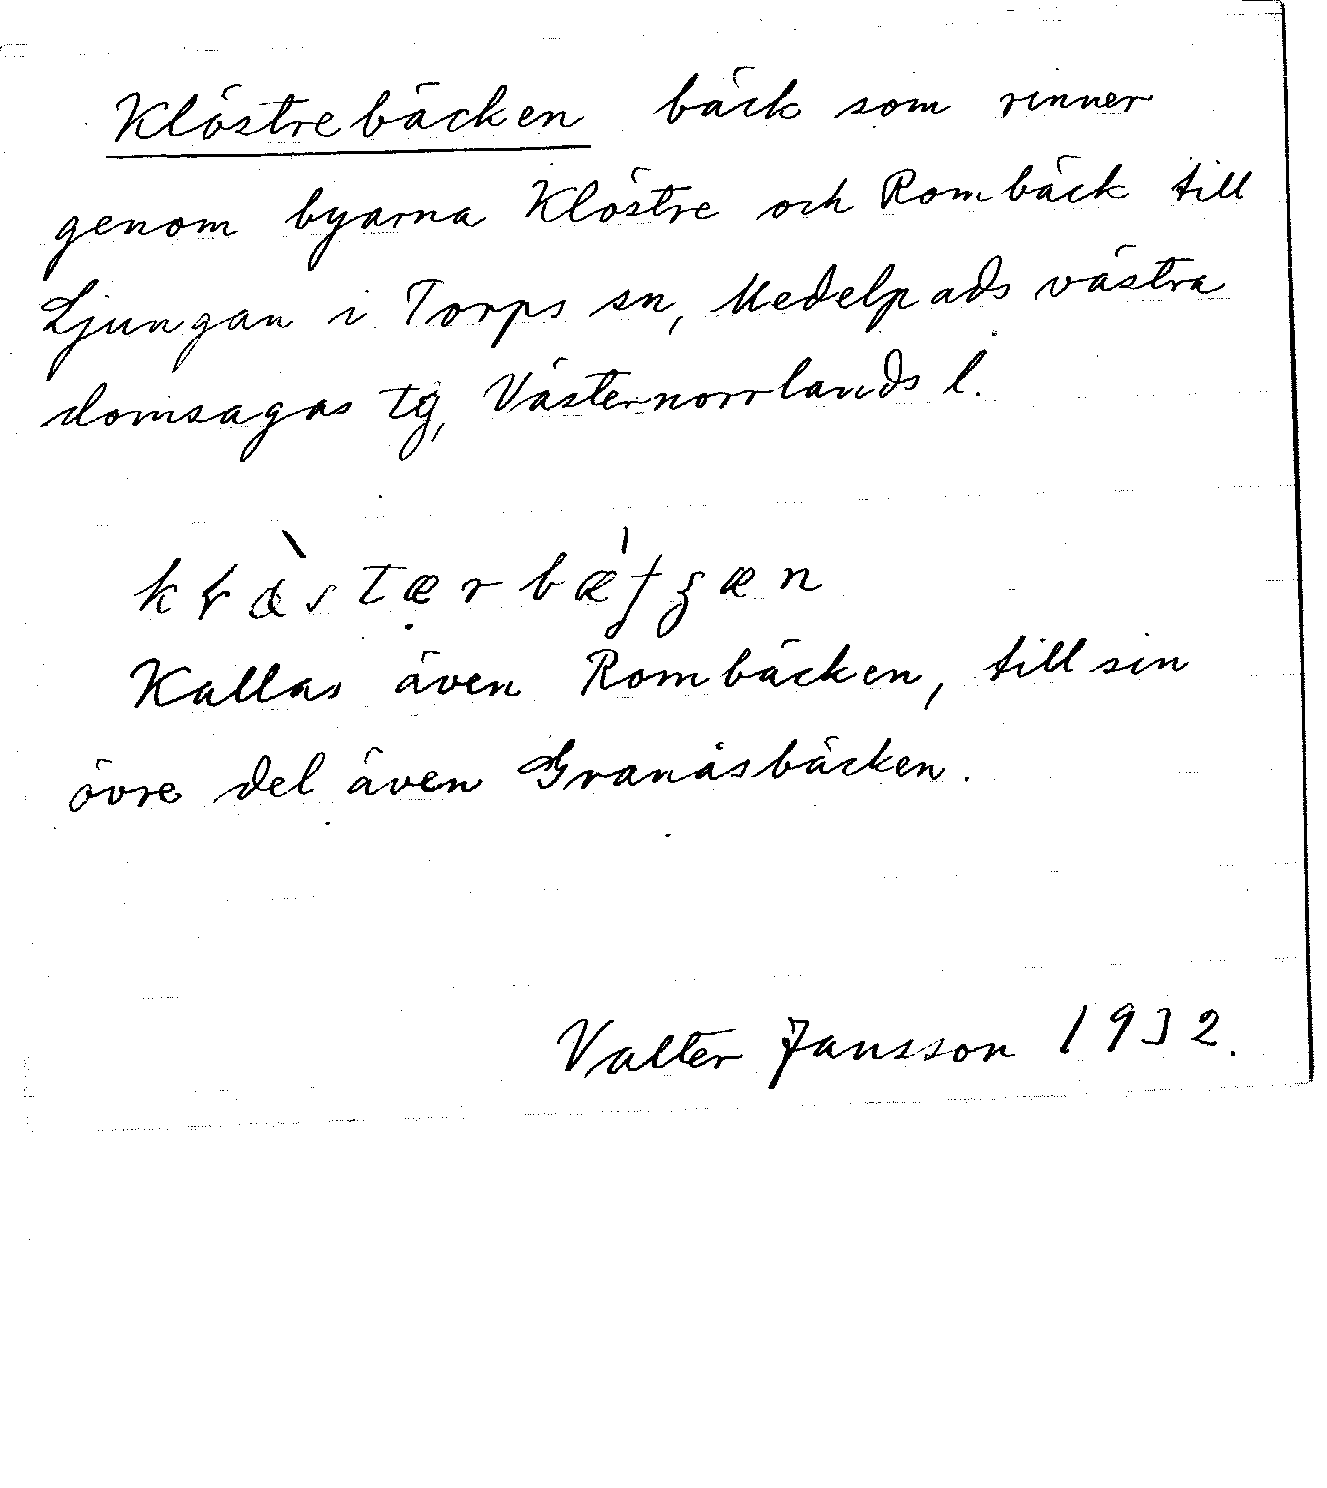 Klöstrebäcken bäck som rinner
genom byarna Klöstre och Rombäck till
Ljungan i Torps sn, Medelpads västra
domsagas tg, Västernorrlands l.
Kallas även Rombäcken, till sin
övre del även Granåsbäcken.
Valter Jansson 1932.